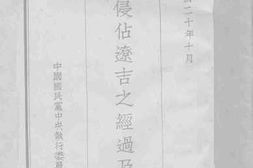 二十年十月
侵佔遼吉之經過及
中國國民黨中央執行委員